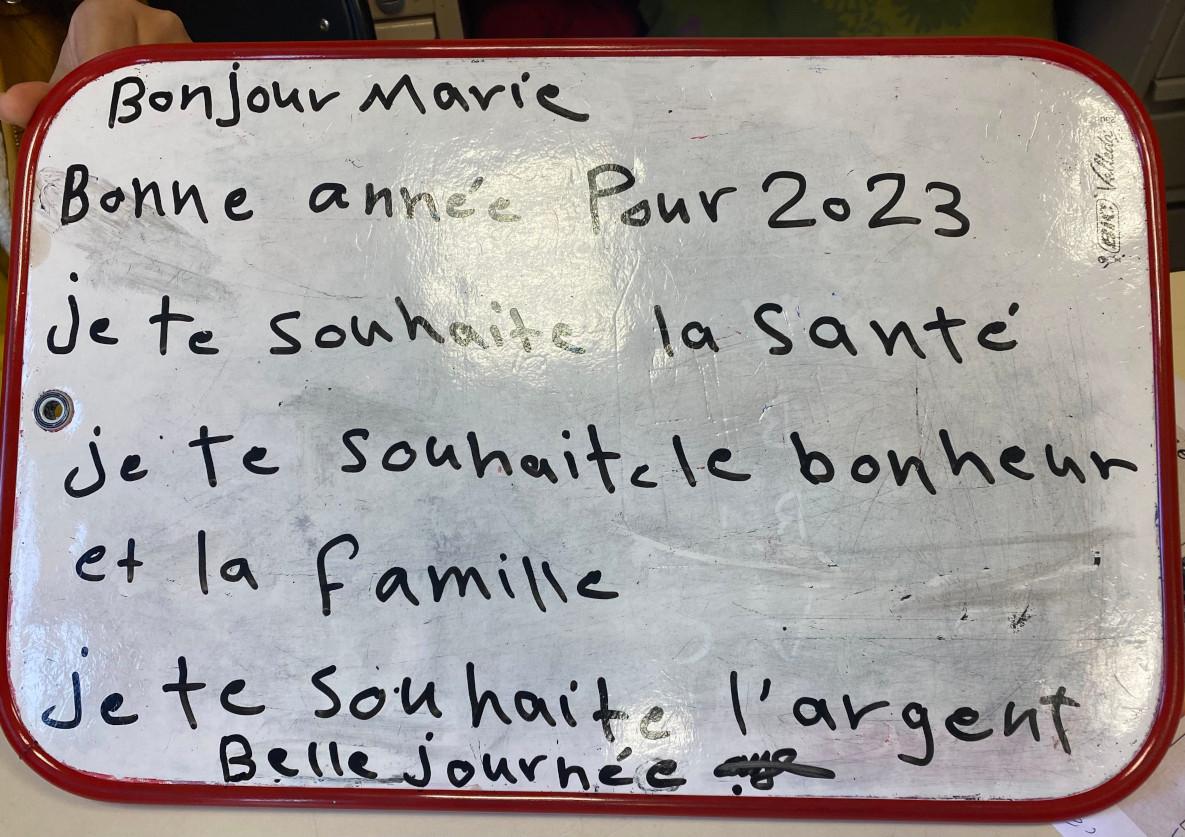 Bonjour Marie
Bonne année Pour 2023
je te souhaite la santé
je te souhaite le bonheur
et la famille
je te souhaite l'argent
Belle journée
BIC Velleda